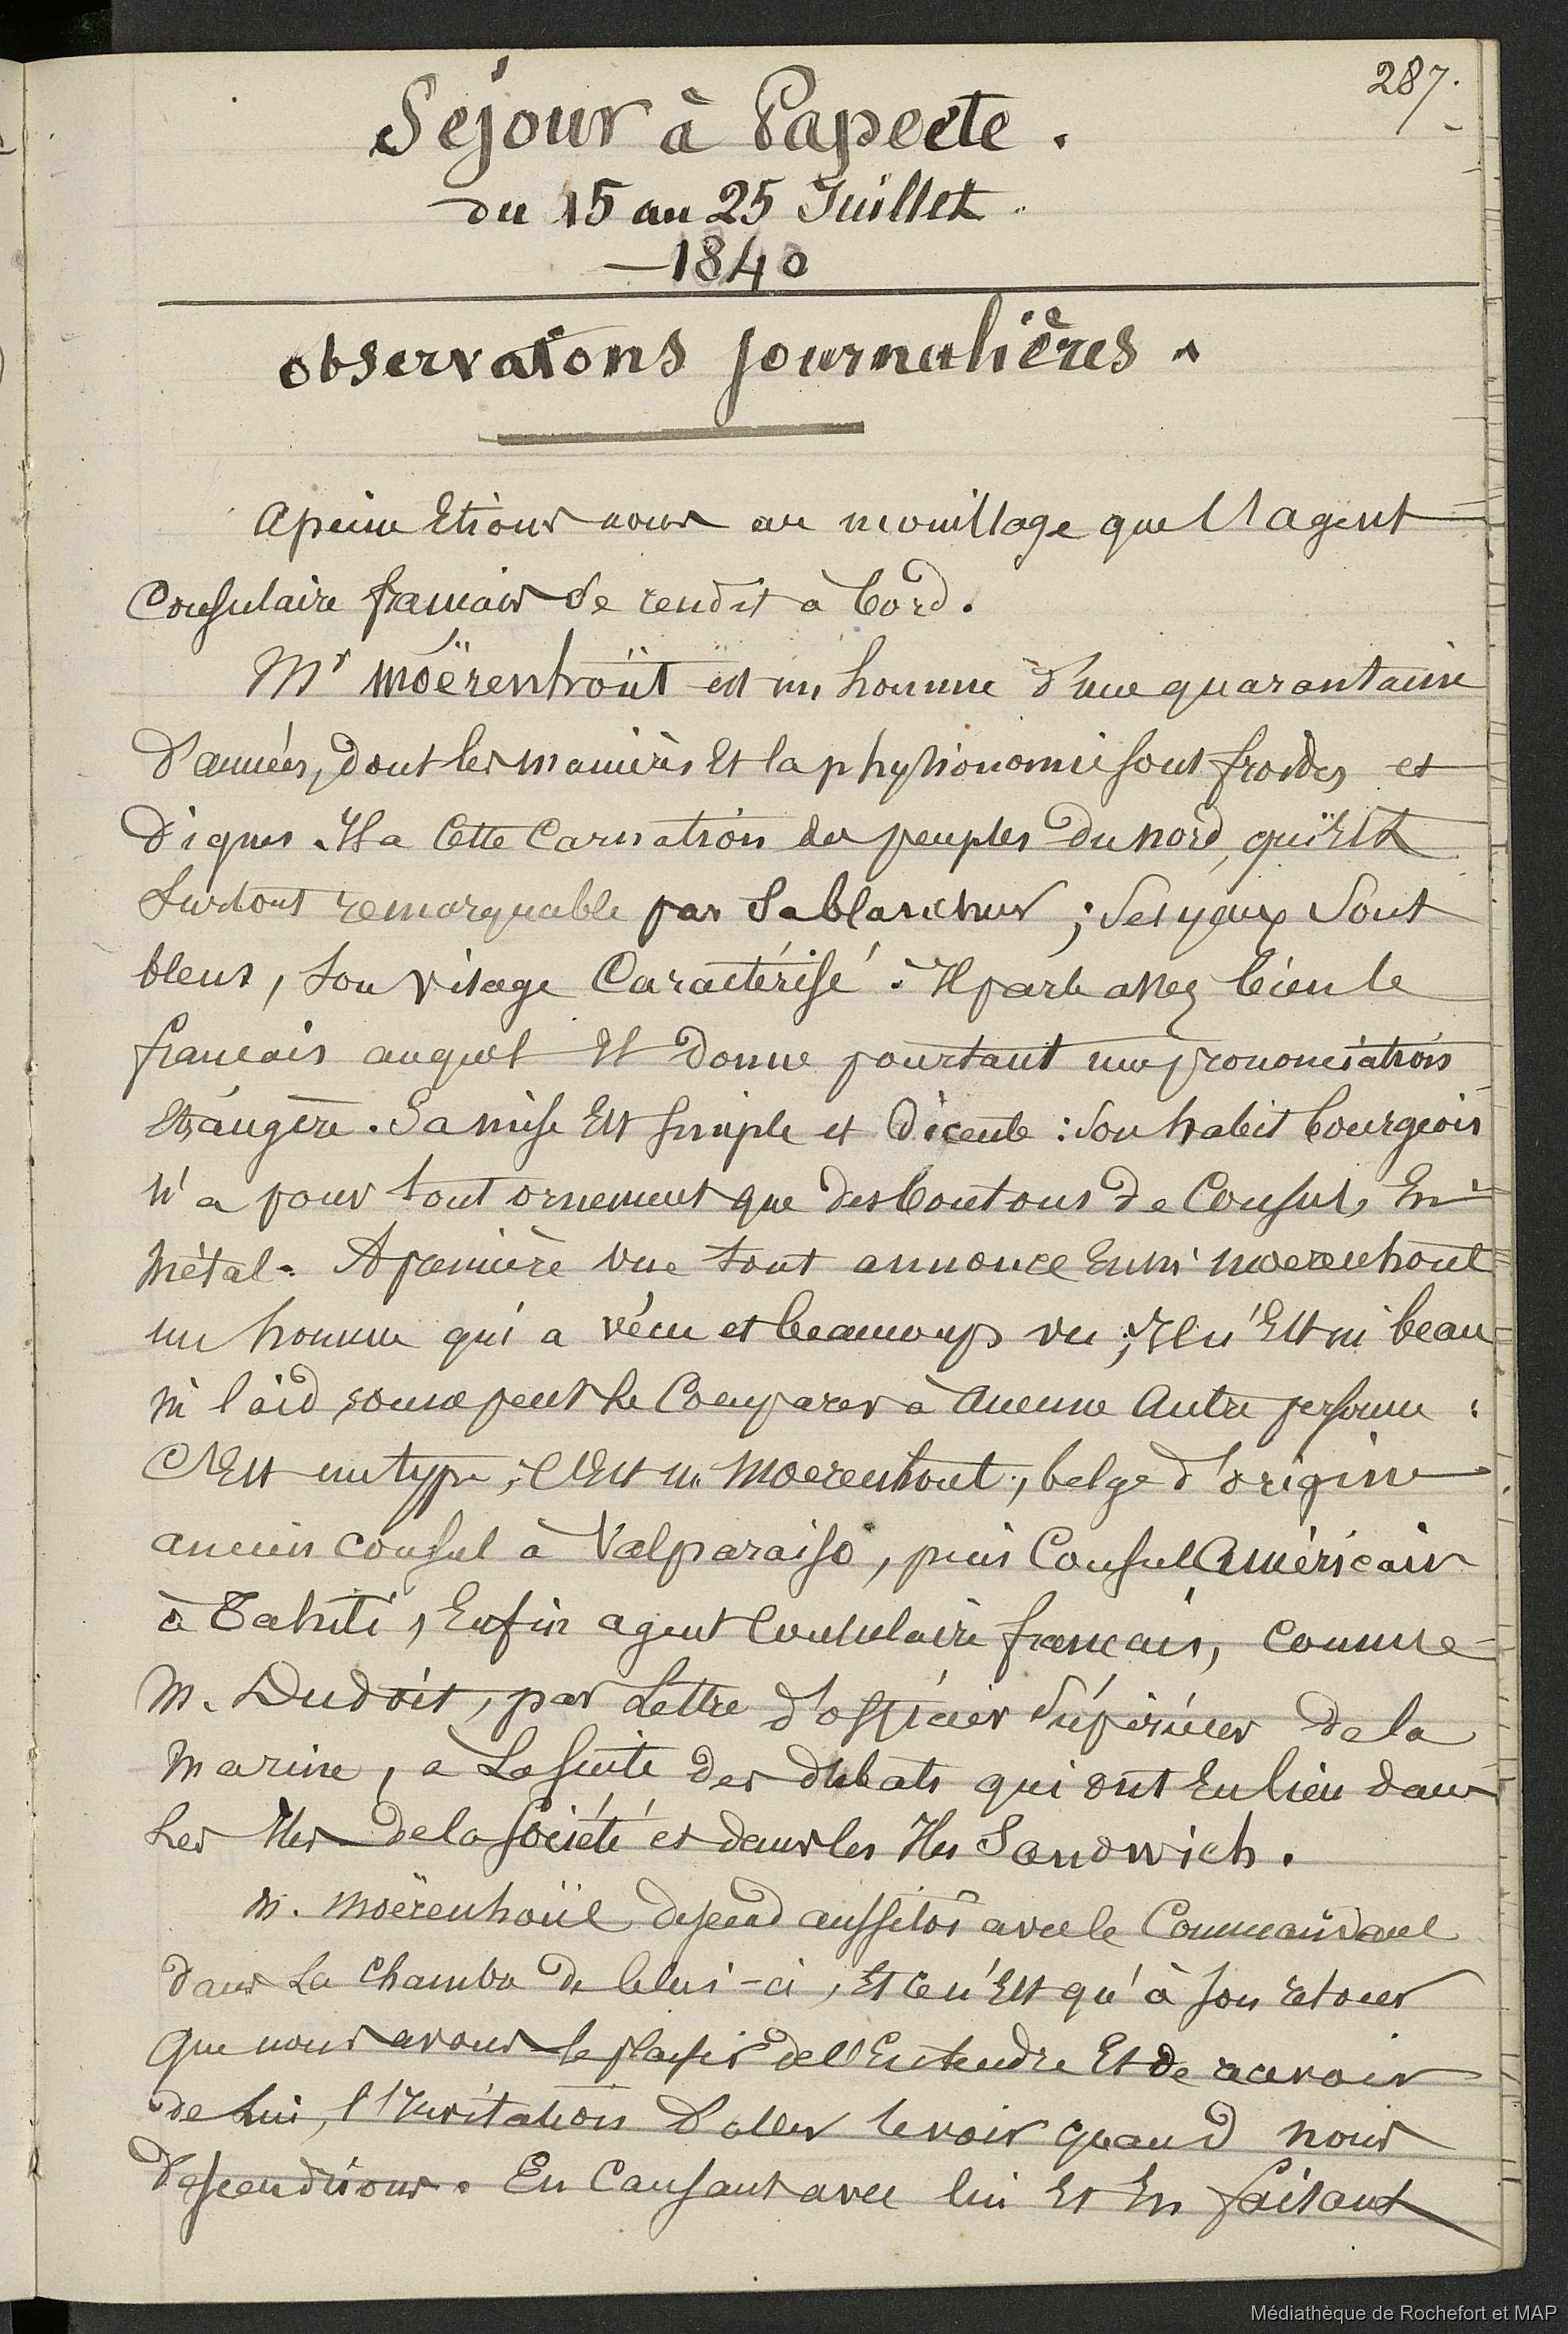 287.
Séjour à Papeete.
du 15 au 25 Juillet.
—1840
observatons journalières.
A peine Etions nous au mouillage que l'agent
Consulaire français se rendit à bord.
Mr Moërenhoüt est un homme d'une quarantaine
d'années, dont les manières Et la physionomie sont froides et
dignes. Il a Cette Carnation des peuples du nord, qui Est
surtout remarquable par sa blancheur; ses yeux sont
bleus, son visage Caractérisé. Il parle assez bien le
français auquel Il donne pourtant une prononciation
Etrangère. Sa mise Est simple et décente: son habit bourgeois
n'a pour tout ornement que des boutons de Consul, En
métal. A première vue tout annonce En M. Moerenhout
un homme qui a vécu et beaucoup vu; Il n'Est ni beau
ni laid, on ne peut le Comparer à Aucune Autre personne:
C'Est un type; C'Est M. Moerenhout, belge d'origine
ancien consul à Valparaiso, puis Consul Américain
à Tahiti, Enfin agent Consulaire français, comme
M. Dudoit, par Lettre d'officier Supérieur de la
Marine, à La suite des débats qui ont Eu lieu dans
Les Iles de la Société et dans les Iles Sandwich.
M. Moërenhoüt descend aussitôt avec le Commandant
dans La Chambre de Celui-ci, Et ce n'Est qu'à son retour
que nous avons le plaisir de l'Entendre Et de recevoir
de Lui, l'Invitation d'aller le voir quand nous
descendrions. En Causant avec lui Et En faisant
Médiathèque de Rochefort et MAP